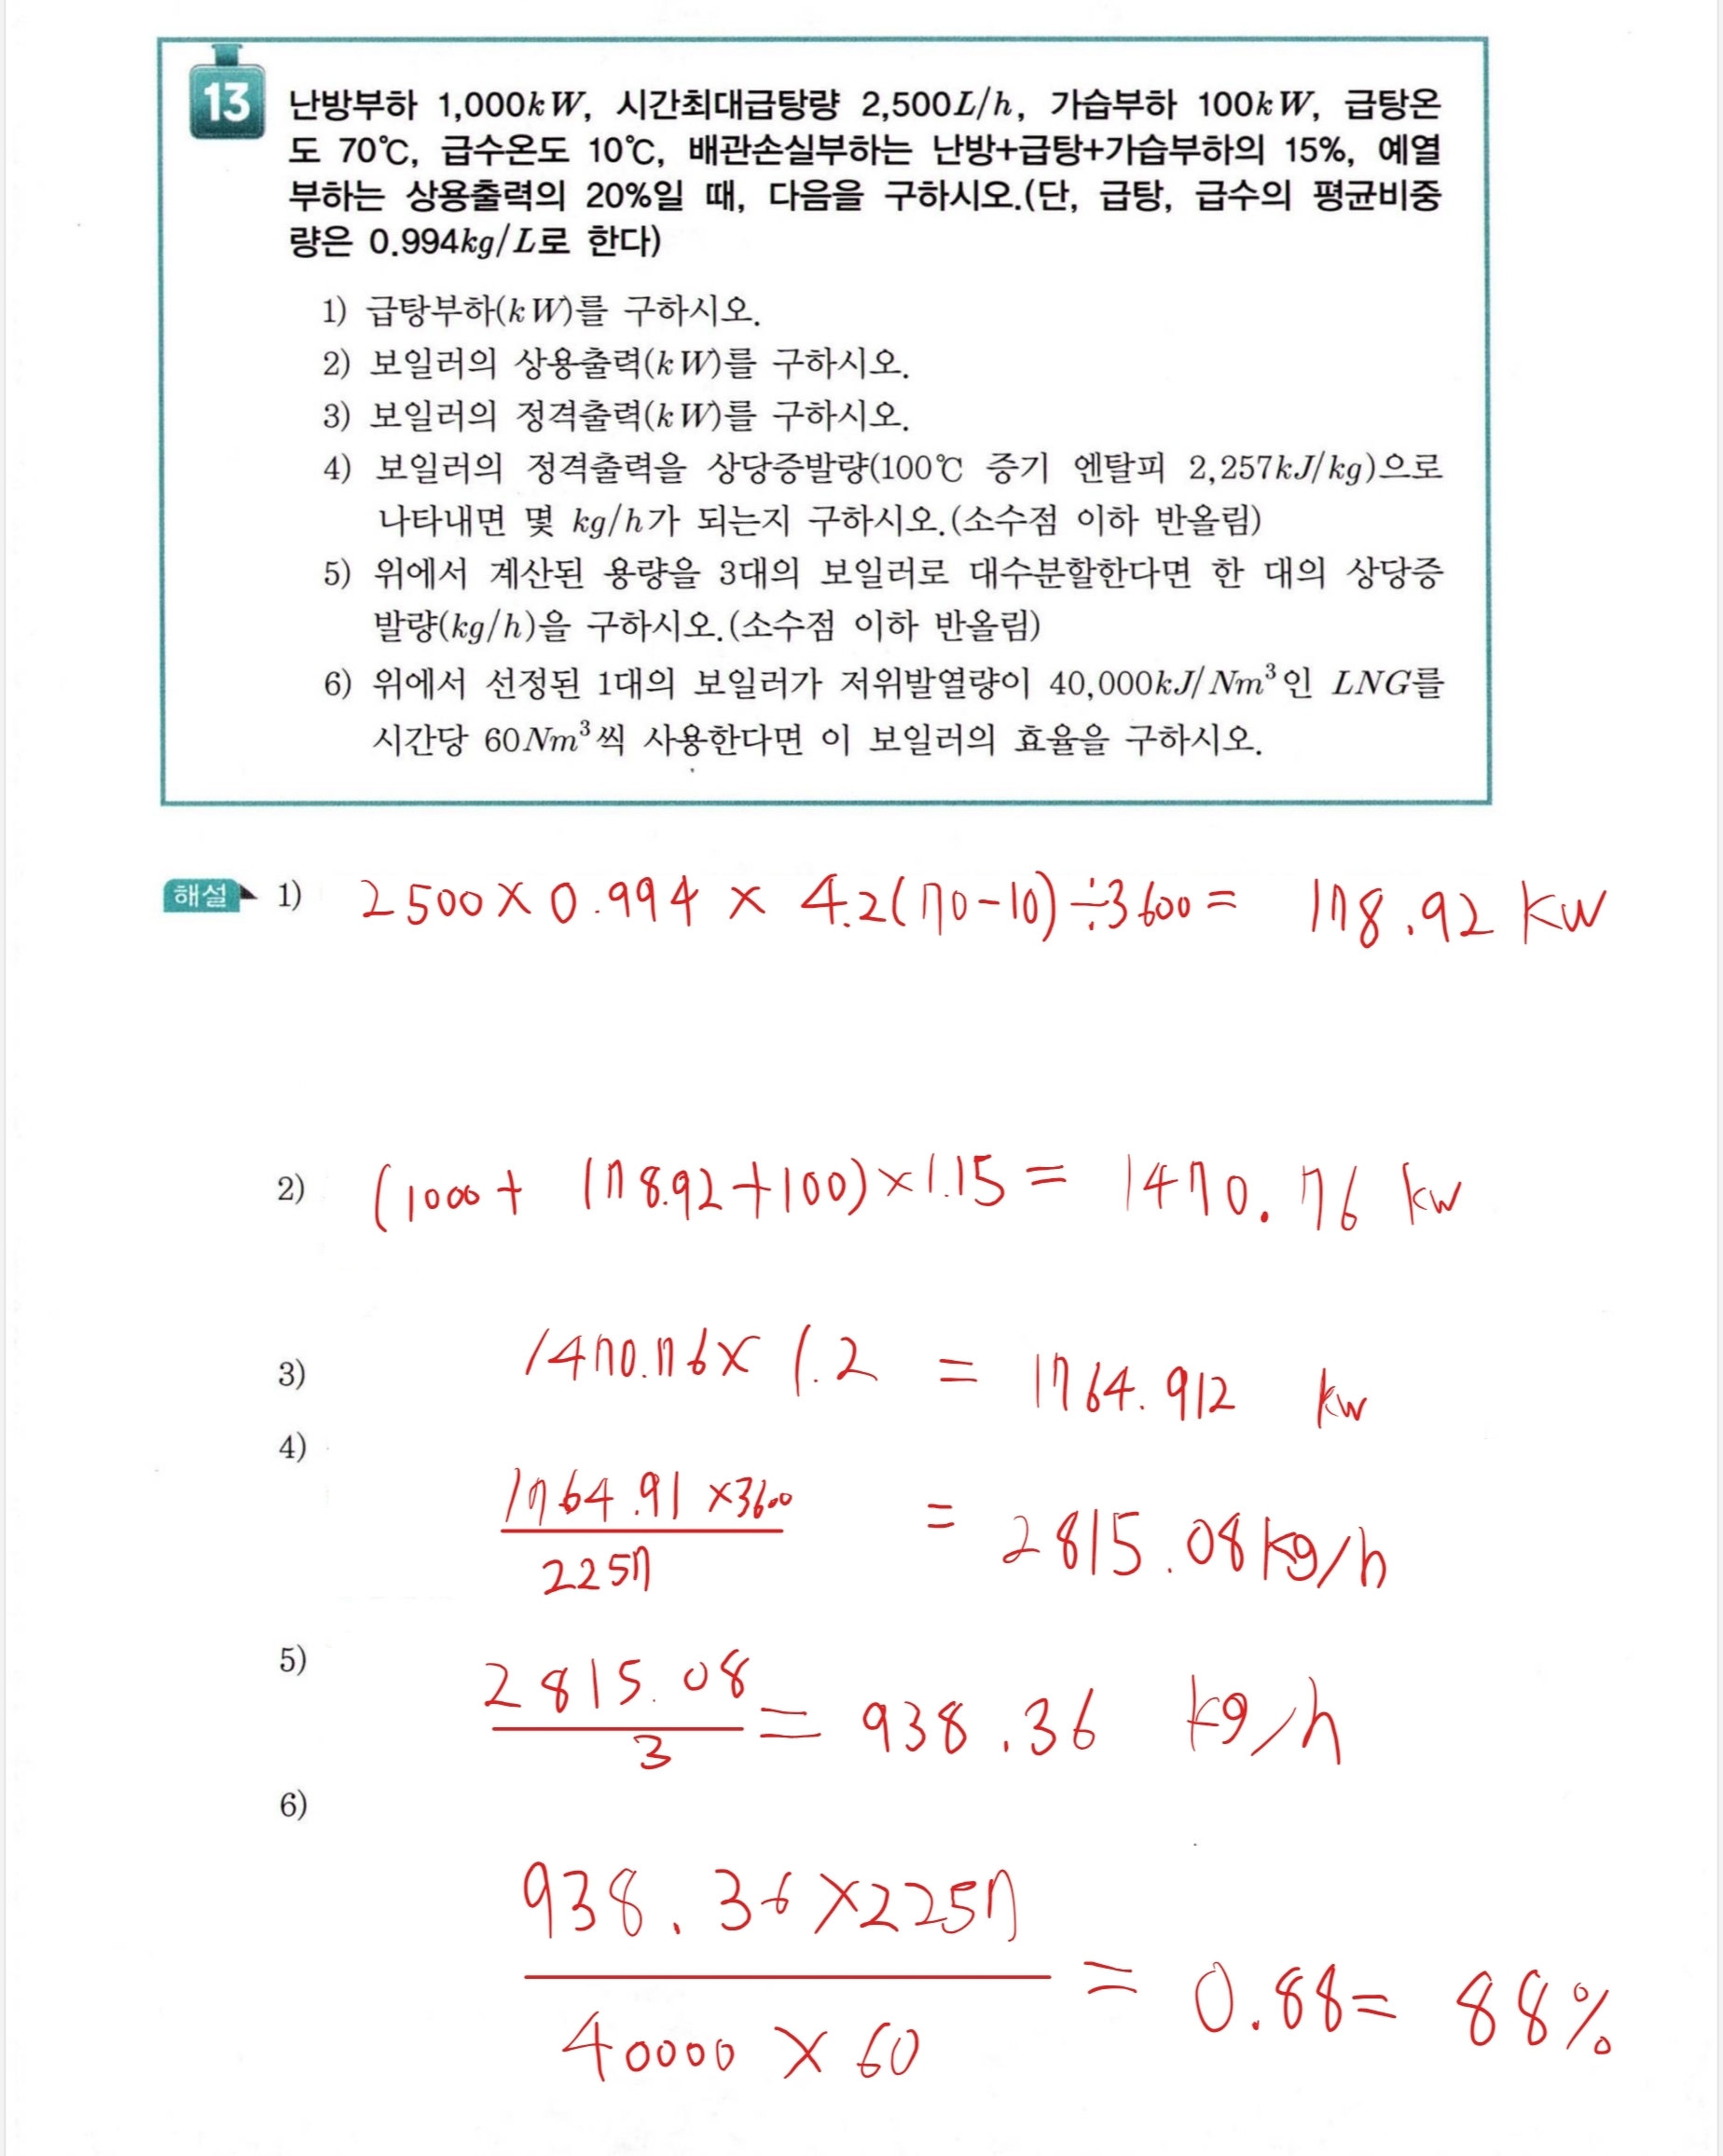 13
난방부하 1,000kW, 시간최대급탕량 2,500L/h, 가습부하 100kW, 급탕온
도 70℃, 급수온도 10℃, 배관손실부하는 난방+급탕+가습부하의 15%, 예열
부하는 상용출력의 20%일 때, 다음을 구하시오.(단, 급탕, 급수의 평균비중
량은 0.994kg/L로 한다)
1) 급탕부하(kW)를 구하시오.
2) 보일러의 상용출력(kW)를 구하시오.
3) 보일러의 정격출력(kW)를 구하시오.
4) 보일러의 정격출력을 상당증발량(100℃ 증기 엔탈피 2,257kJ/kg)으로
나타내면 몇 kg/h가 되는지 구하시오.(소수점 이하 반올림)
5) 위에서 계산된 용량을 3대의 보일러로 대수분할한다면 한 대의 상당증
발량(kg/h)을 구하시오.(소수점 이하 반올림)
6) 위에서 선정된 1대의 보일러가 저위발열량이 40,000kJ/Nm³인 LNG를
시간당 60Nm³씩 사용한다면 이 보일러의 효율을 구하시오.
해설 1) 2500 × 0.994 × 4.2(70-10) ÷3600 = 178.92 kw
2) (1000 + 178.92 + 100) × 1.15 = 1470.76 kw
3) 1470.76 × 1.2 = 1764.912 kw
4)
1764.91 ×3600
2257
= 2815.08 kg/h
5)
2815.08
3
= 938.36 kg/h
6)
938.36 ×2257
40000 × 60
= 0.88 = 88%